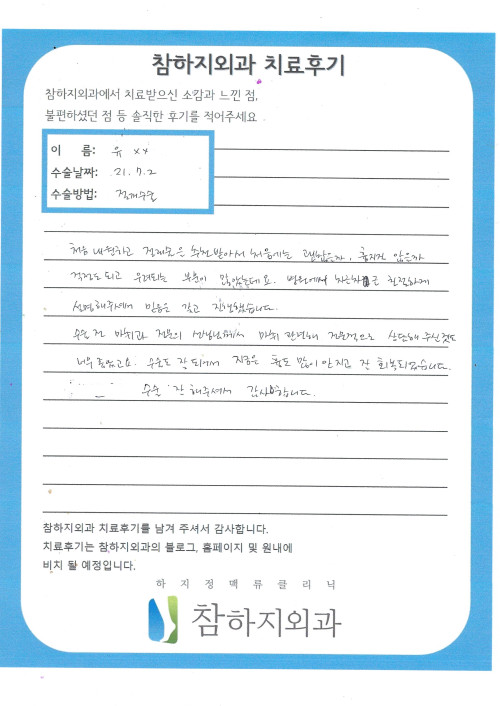 참하지외과 치료후기
참하지외과에서 치료받으신 소감과 느낀 점,
불편하셨던 점 등 솔직한 후기를 적어주세요
이 름: 유 xx
수술날짜: 21. 7. 2
수술방법: 절제수술
처음 내원하고 절제술은 추천받아서 처음에는 괜찮은가, 흉지진 않은가
걱정도 되고 우려되는 부분이 많았는데요. 병원에서 차근차근 친절하게
설명해주셔서 믿음을 갖고 진행했습니다.
수술 전 마취과 전문의 선생님께서 마취 관련해 전문적으로 상담해 주신것도
너무 좋았고요. 수술도 잘 되어서 지금은 흉도 많이 안지고 잘 회복되었습니다.
수술 잘 해주셔서 감사합니다.
참하지외과 치료후기를 남겨 주셔서 감사합니다.
치료후기는 참하지외과의 블로그, 홈페이지 및 원내에
비치 될 예정입니다.
하지정맥류클리닉
참하지외과